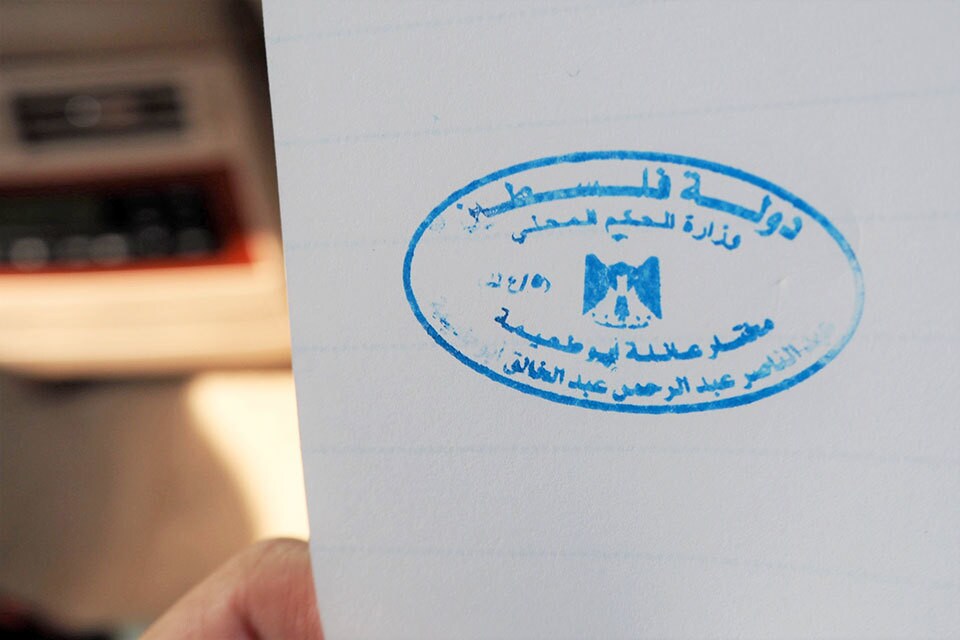 دولة فلسطين
وزارة الحكم المحلي
مختار عائلة ابو طعيمة
عبد الناصر عبد الرحمن عبد الخالق ابو طعيمة